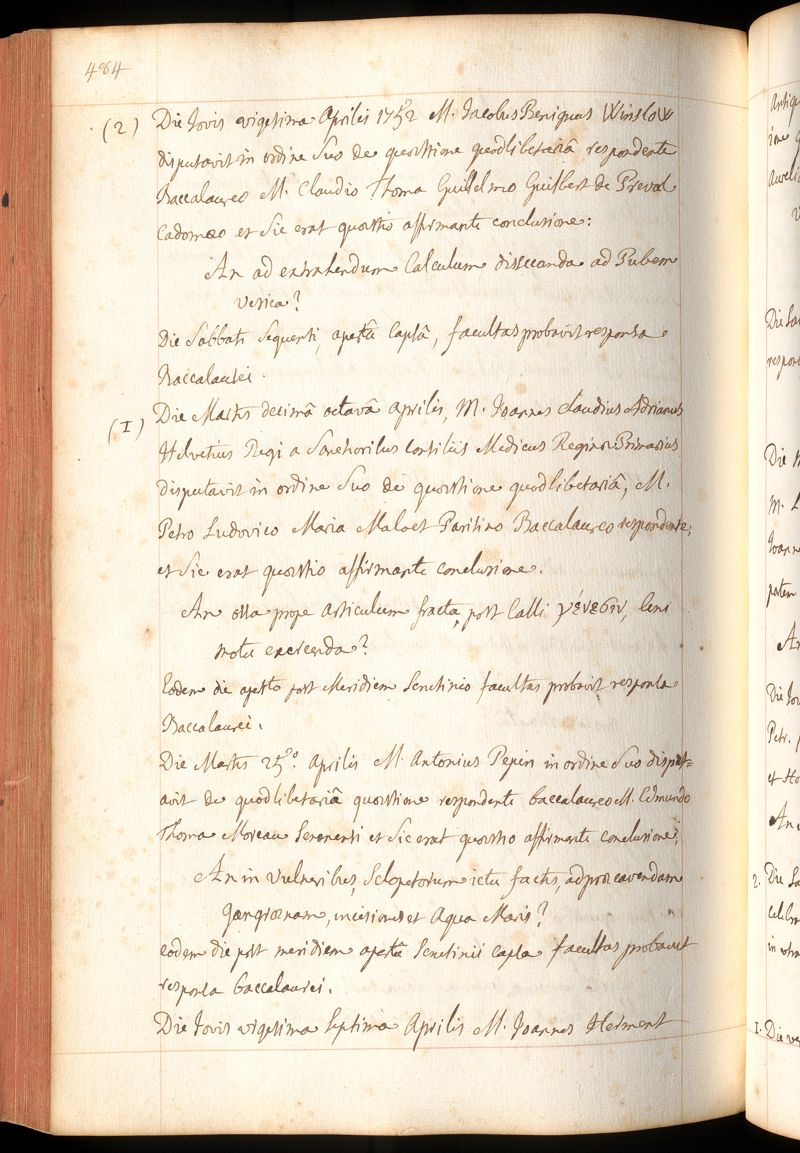 484
(2) Die Jovis vigesima Aprilis 1752 M. Jacobus Benignus Winslow
disputavit in ordine suo de quæstione quodlibetariâ respondente
Baccalaureo M. Claudio Thoma Guillelmo Guilbert de Preval
Cadomæo et sic erat quæstio affirmante conclusione:
An ad extrahendum Calculum dissecanda ad Pubem
vesica?
Die Sabbati sequenti, apertâ Capsâ, facultas probavit responsa
Baccalaurei.
(1) Die Martis decimâ octavâ aprilis, M. Joannes Claudius Adrianus
Helvetius Regi a Sanctioribus Consiliis Medicus Reginæ Primarius
disputavit in ordine suo de quæstione quodlibetariâ, M.
Petro Ludovico Maria Maloet Parisino Baccalaureo respondente,
et sic erat quæstio affirmante conclusione.
An ossa prope articulum fracta, post Calli γένεσιν, leni
motu exercenda?
Eodem die aperto post Meridiem Scrutinio facultas probavit responsa
Baccalaurei.
Die Martis 25ª. Aprilis M. Antonius Pepin in ordine suo disput=
avit de quodlibetariâ quæstione respondente baccalaureo M. Edmundo
Thoma Moreau et sic erat quæstio affirmante conclusione;
An in vulneribus, Sclopetorum ictu factis, ad præcavendam
Gangrænam, incisiones et Aqua Maris?
eodem die post meridiem apertâ Scrutinii capsa facultas probavit
responsa baccalaurei.
Die Jovis vigesima septima Aprilis M. Joannes Herment